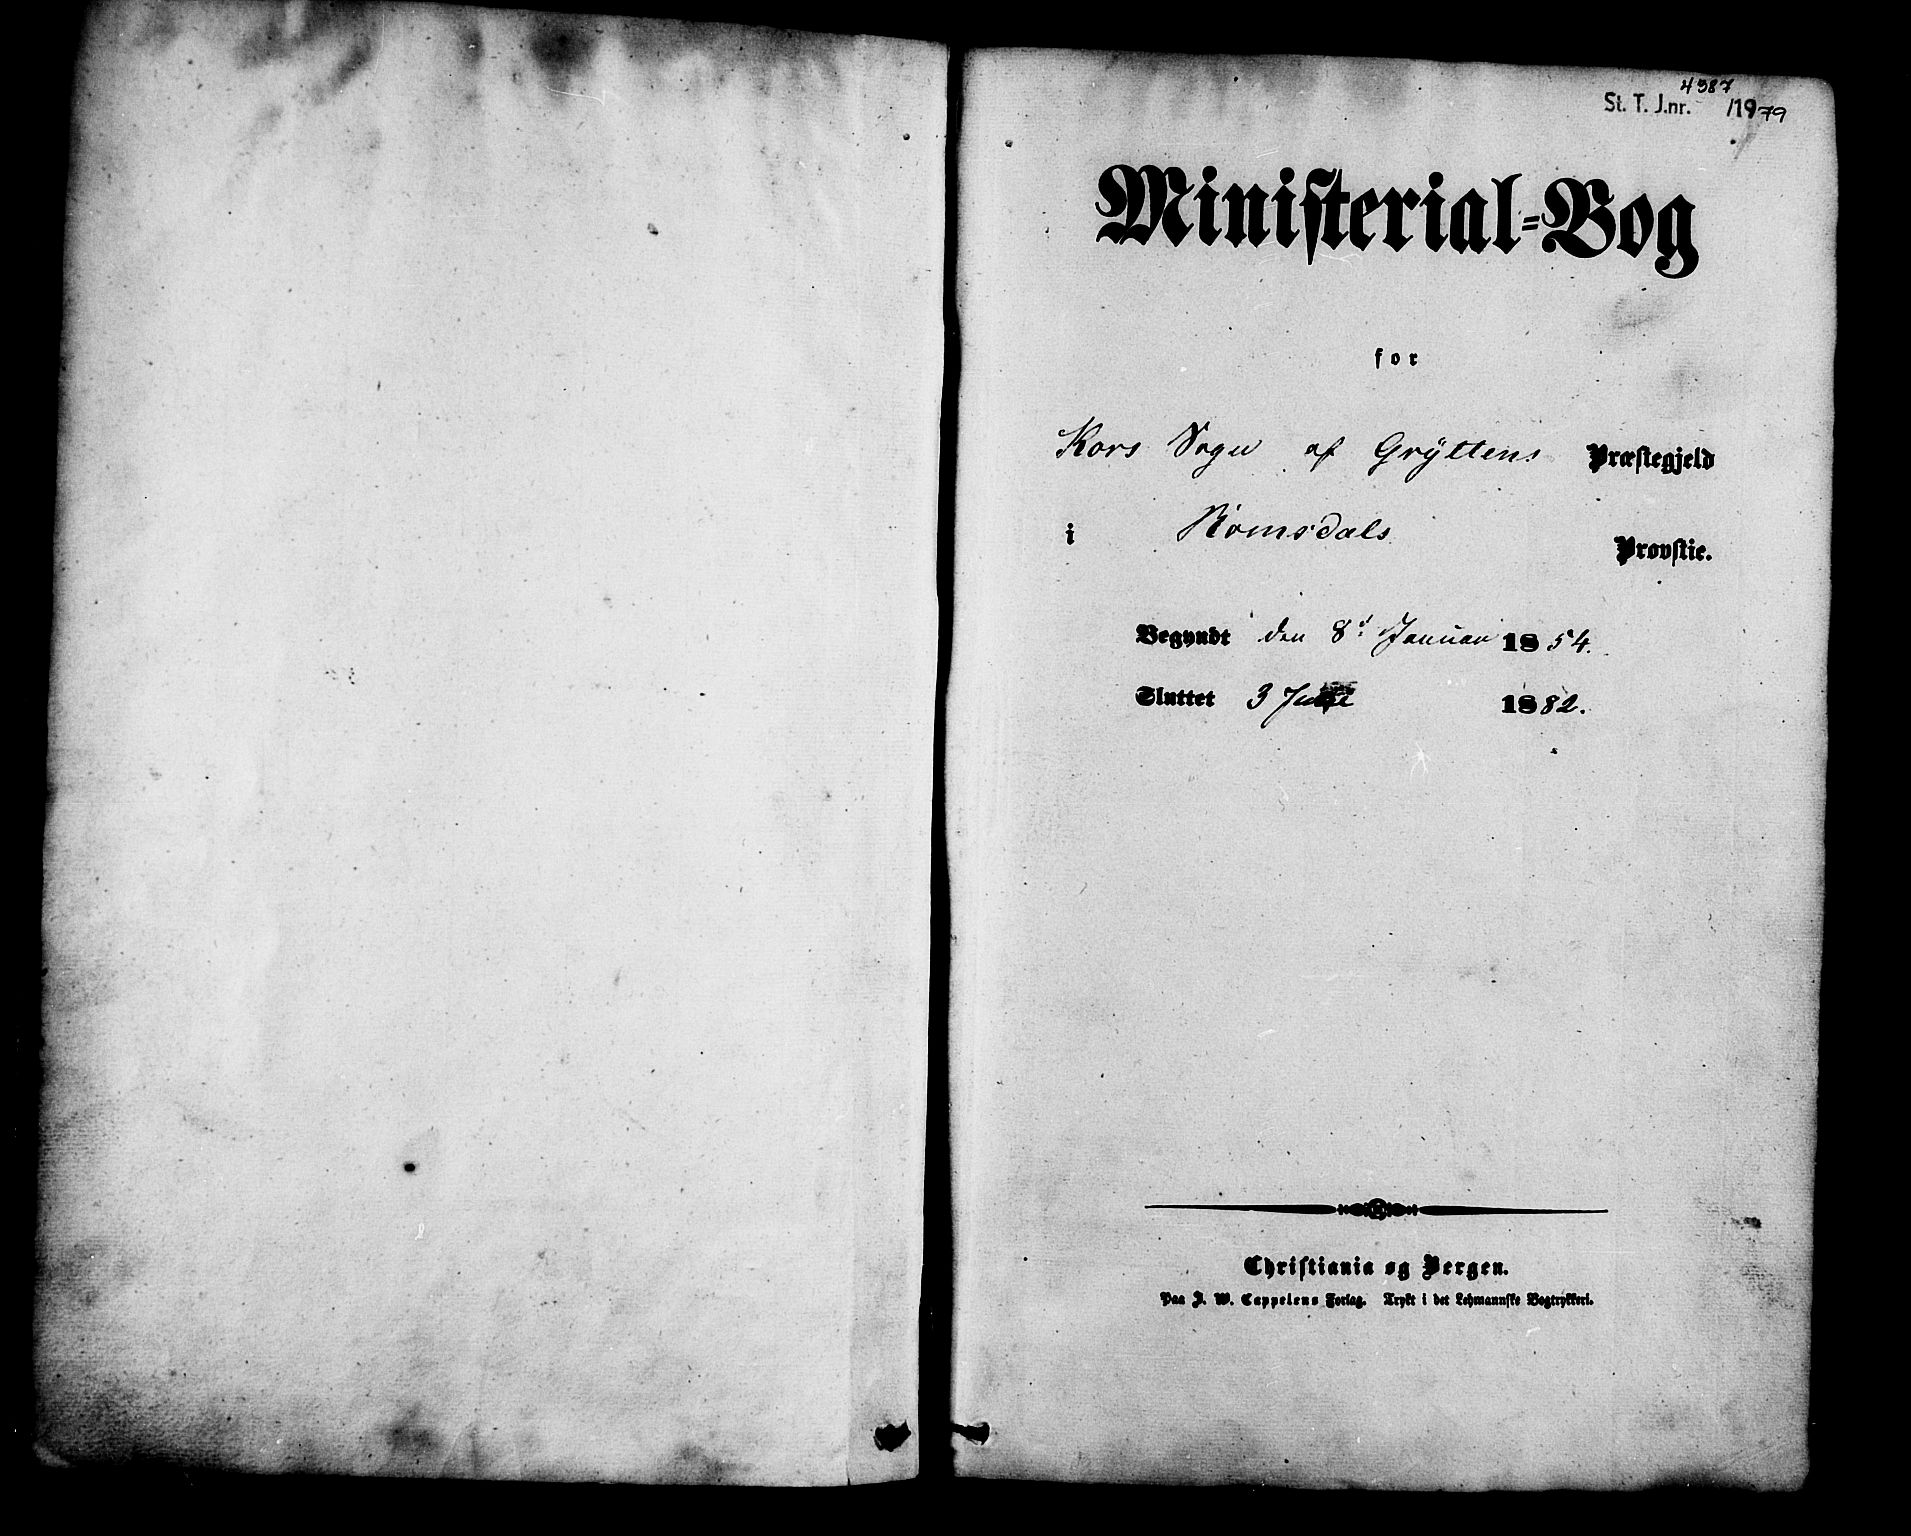 4387
St. T. J.nr. /1979
Ministerial-Bog
for
Kors Sogn af Grÿttens Præstegjeld
i Romsdals Provstie.
Begyndt den 8d. Januar 1854.
Sluttet 3 1882.
Christiania og Bergen.
Paa J. W. Cappelens Forlag. Trykt i det Lehmannske Bogtrykkeri.